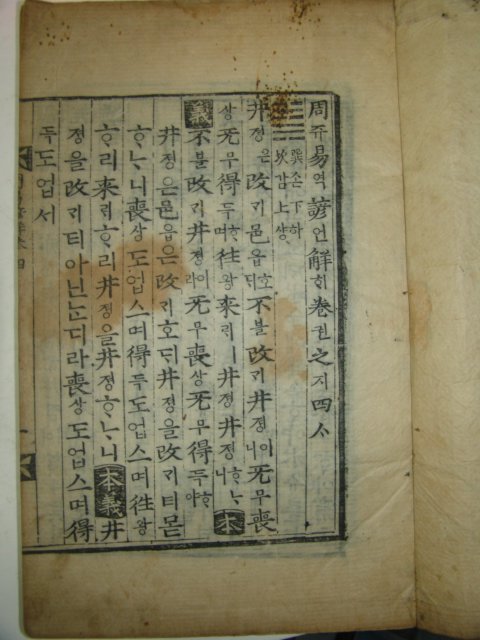 周쥬易역諺언解ᄒᆡ卷권之지四ᄉᆞ
䷯巽손下하坎감上샹
井졍은改ᄀᆡ邑읍호ᄃᆡ不불改ᄀᆡ井졍이니无무喪
상无무得득ᄒᆞ며往왕來ᄅᆡㅣ井졍井졍ᄒᆞᄂᆞ니本
義不불改ᄀᆡ井졍이라无무喪상无무得득ᄒᆞ야
井졍은邑읍은改ᄀᆡ호ᄃᆡ井졍을改ᄀᆡ티몯
ᄒᆞᄂᆞ니喪상도업스며得득도업스며往왕
ᄒᆞ리來ᄅᆡᄒᆞ리井졍을井졍ᄒᆞᄂᆞ니本義井
졍을改ᄀᆡ티아닌ᄂᆞᆫ디라喪상도업스며得
득도업서